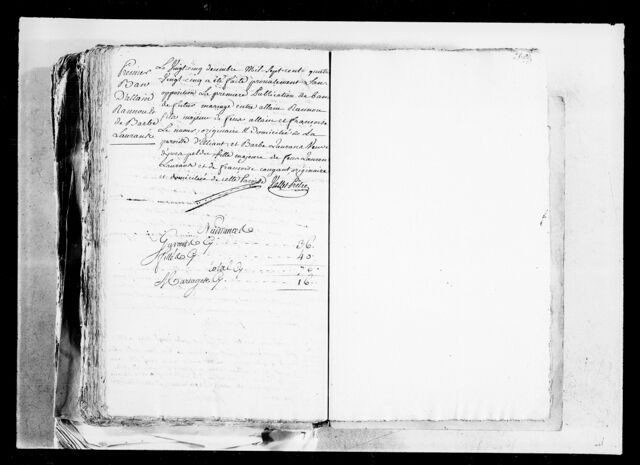 Premier
Ban
D'allain
Rannou &
de Barbe
Laurant
Le Vingt cinq decembre Mil Sept cent quatre
Vingt cinq a été faite pronalement San
opposition La premiere Publication de ban
de futur mariage entre allain Rannou
fils majeur de feus allain et francoise
Le naour, originaire & Domicilié de La
paroisse d'Elliant, et Barbe Laurant Veuve
fille majeure de feu Laurent
Laurant et de francoise originaire
et domiciliée de cette Paroisse
Naissances
Garcons Cy 36.
filles Cy 40.
total Cy 76.
Mariages Cy 16.